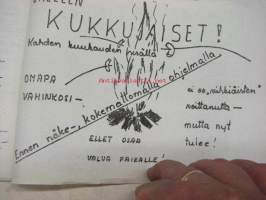 KUKKUJAISET!
Kahden kuukauden perällä
OMAPA
VAHINKOSI —
Ennen näke-, kokemattomalla ohjelmalla
ei oo "nikkiäisten"
voittanutta —
mutta nyt
tulee!
ELLET OSAA
VALVA PAIKALLE!